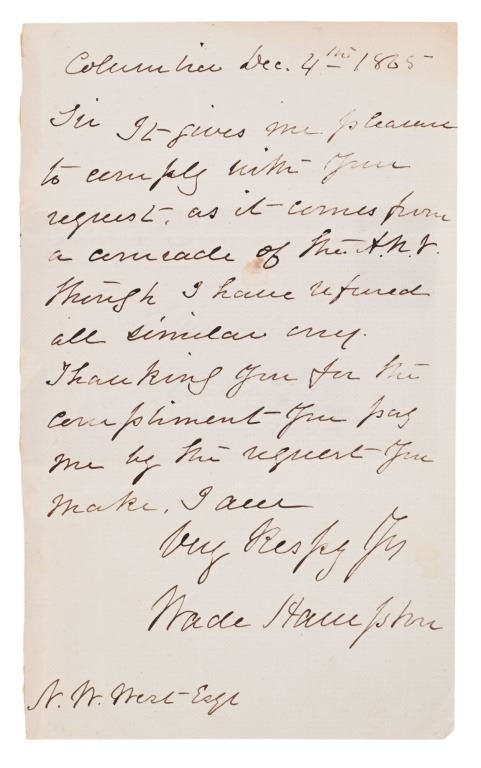 Columbia Dec. 4th 1865
Sir It gives me pleasure
to comply with your
request, as it comes from
a comrade of the A.N.V.
though I have refused
all similar ones.
Thanking you for the
compliment you pay
me by the request you
make, I am
Very Respy Yrs
Wade Hampton
N. W. West Esqr